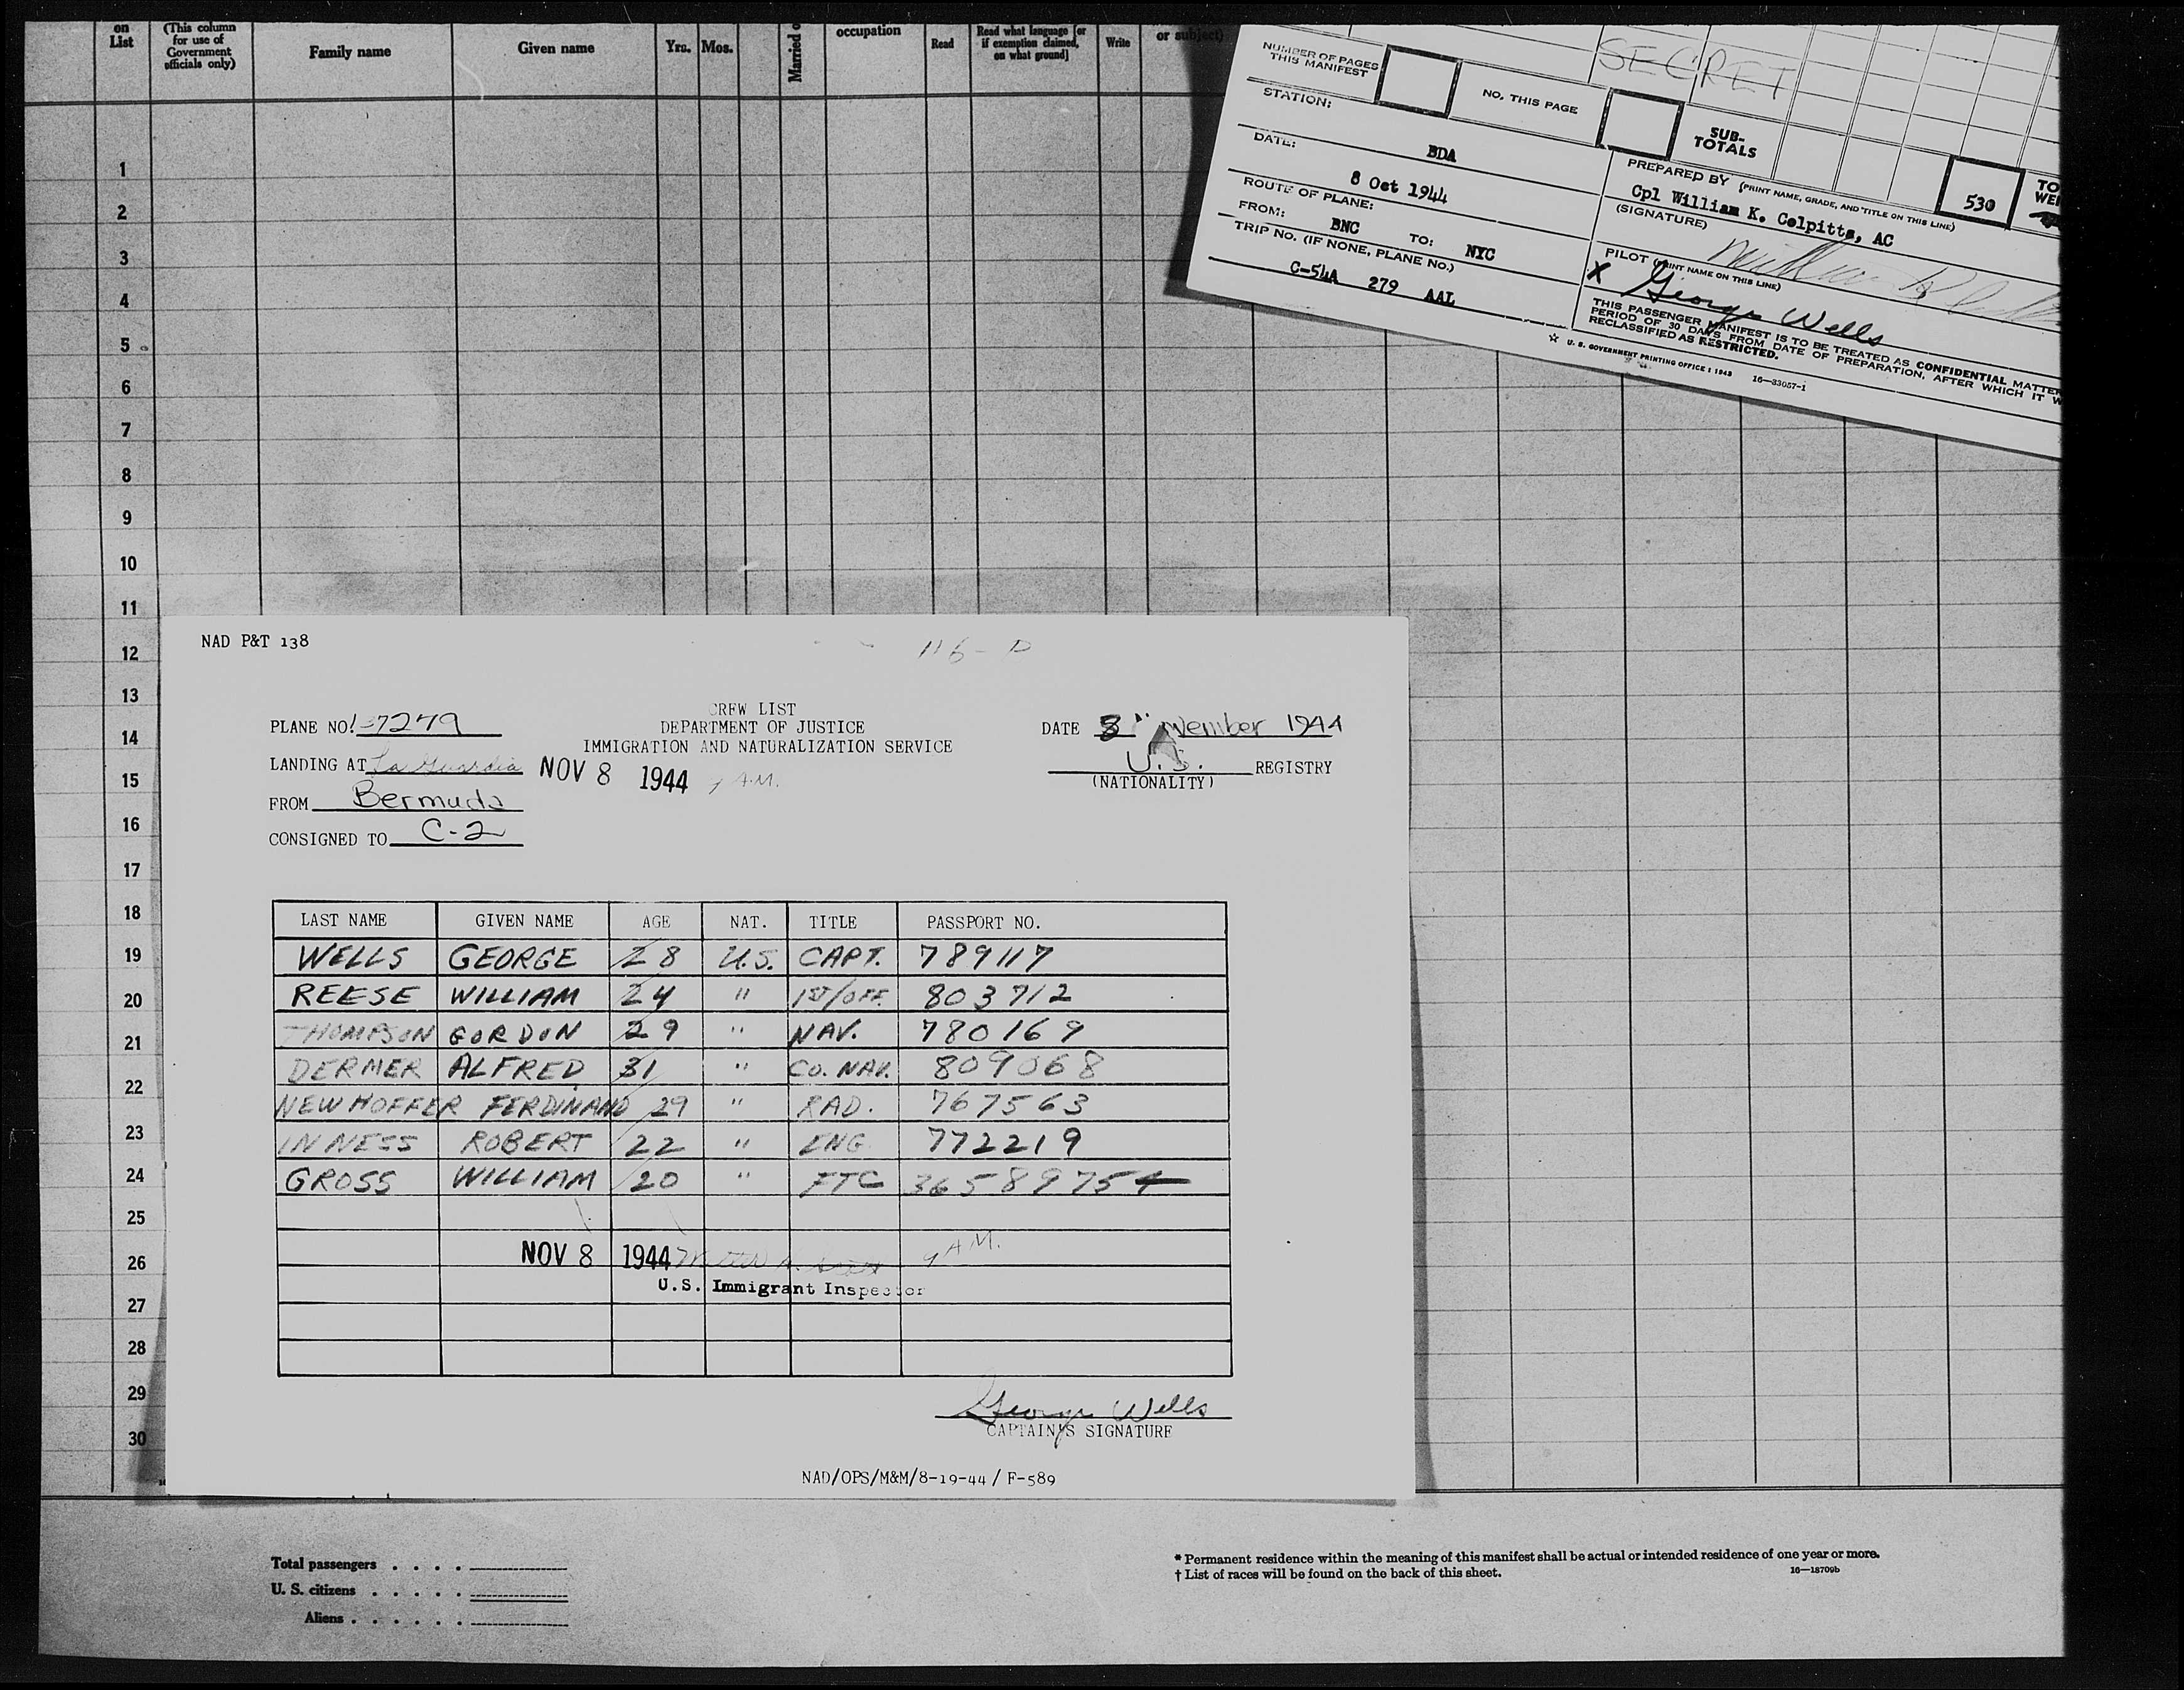 on List
(This column for use of Government officials only)
Family name
Given name
Yrs.
Mos.
Married o
occupation
Read
Read what language [or if exemption claimed, on what ground]
Write
or subject)
1
2
3
4
5
6
7
8
9
10
11
12
13
14
15
16
17
18
19
20
21
22
23
24
25
26
27
28
29
30
SECRET
NUMBER OF PAGES THIS MANIFEST
NO. THIS PAGE
SUB-TOTALS
530
TO
WEI
STATION:
BDA
DATE:
8 Oct 1944
ROUTE OF PLANE:
FROM: BNC TO: NYC
TRIP NO. (IF NONE, PLANE NO.)
C-54A 279 AAL
PREPARED BY (PRINT NAME, GRADE, AND TITLE ON THIS LINE)
Cpl William K. Colpitts, AC
(SIGNATURE)
PILOT (PRINT NAME ON THIS LINE)
X George Wells
THIS PASSENGER MANIFEST IS TO BE TREATED AS CONFIDENTIAL MATTER
PERIOD OF 30 DAYS FROM DATE OF PREPARATION, AFTER WHICH IT W
RECLASSIFIED AS RESTRICTED.
☆ U. S. GOVERNMENT PRINTING OFFICE : 1943 16—33057-1
NAD P&T 138
116 - D
CREW LIST
DEPARTMENT OF JUSTICE
IMMIGRATION AND NATURALIZATION SERVICE
PLANE NO. 7279
DATE 8 vember 1944
LANDING AT La Guardia NOV 8 1944 9 A.M.
U.S. REGISTRY
(NATIONALITY)
FROM Bermuda
CONSIGNED TO C-2
LAST NAME GIVEN NAME AGE NAT. TITLE PASSPORT NO.
WELLS GEORGE 28 U.S. CAPT. 789117
REESE WILLIAM 24 " 1ST/OFF. 803712
THOMPSON GORDON 29 " NAV. 780169
DERMER ALFRED 31 " CO. NAV. 809068
NEWHOFFER FERDINAND 29 " RAD. 767563
INNESS ROBERT 22 " ENG 772219
GROSS WILLIAM 20 " FTC 36589754
NOV 8 1944 9 AM.
U.S. Immigrant Inspector
George Wells
CAPTAIN'S SIGNATURE
NAD/OPS/M&M/8-19-44 / F-589
Total passengers
U. S. citizens
Aliens
* Permanent residence within the meaning of this manifest shall be actual or intended residence of one year or more.
† List of races will be found on the back of this sheet.
16—18709b